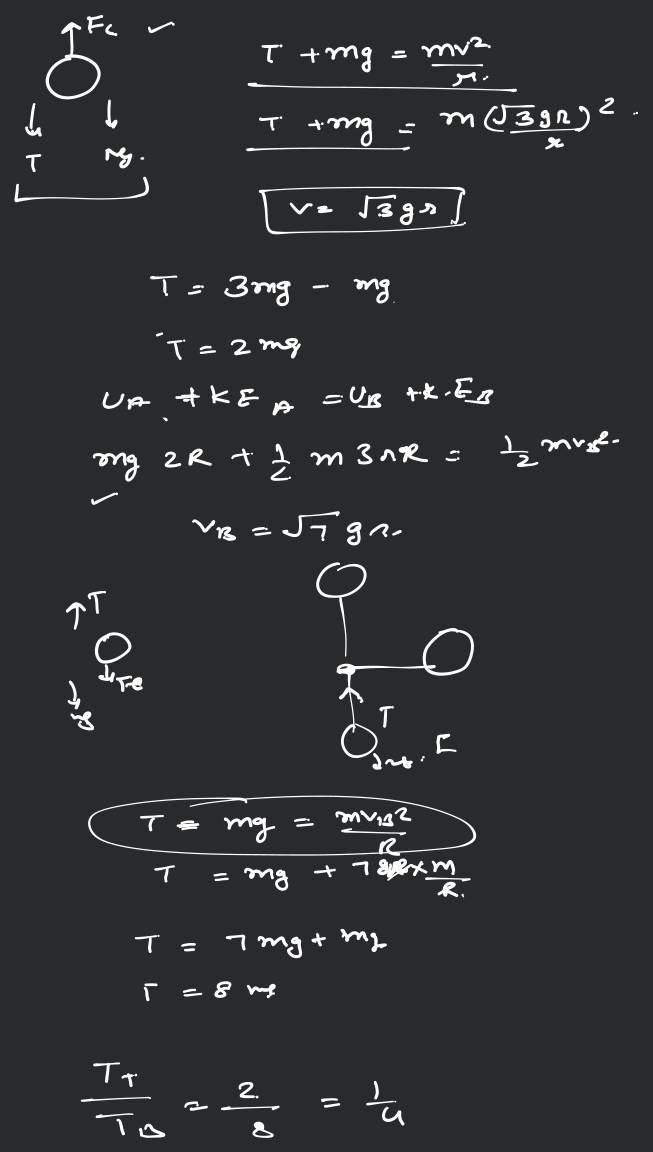 Fc ✓
T + mg = mv²/r.
T + mg = m(√3gr)²/r.
T mg.
v = √3gr
T = 3mg - mg
T = 2mg
UA + KEA = UB + K.EB
mg 2R + 1/2 m 3rR = 1/2 mvB².
✓
VB = √7gr.
T
Fc
mg
T
T = mg = mvB²/R
T = mg + 7gR × m/R.
T = 7mg + mg
T = 8mg
TT/TB = 2/8 = 1/4